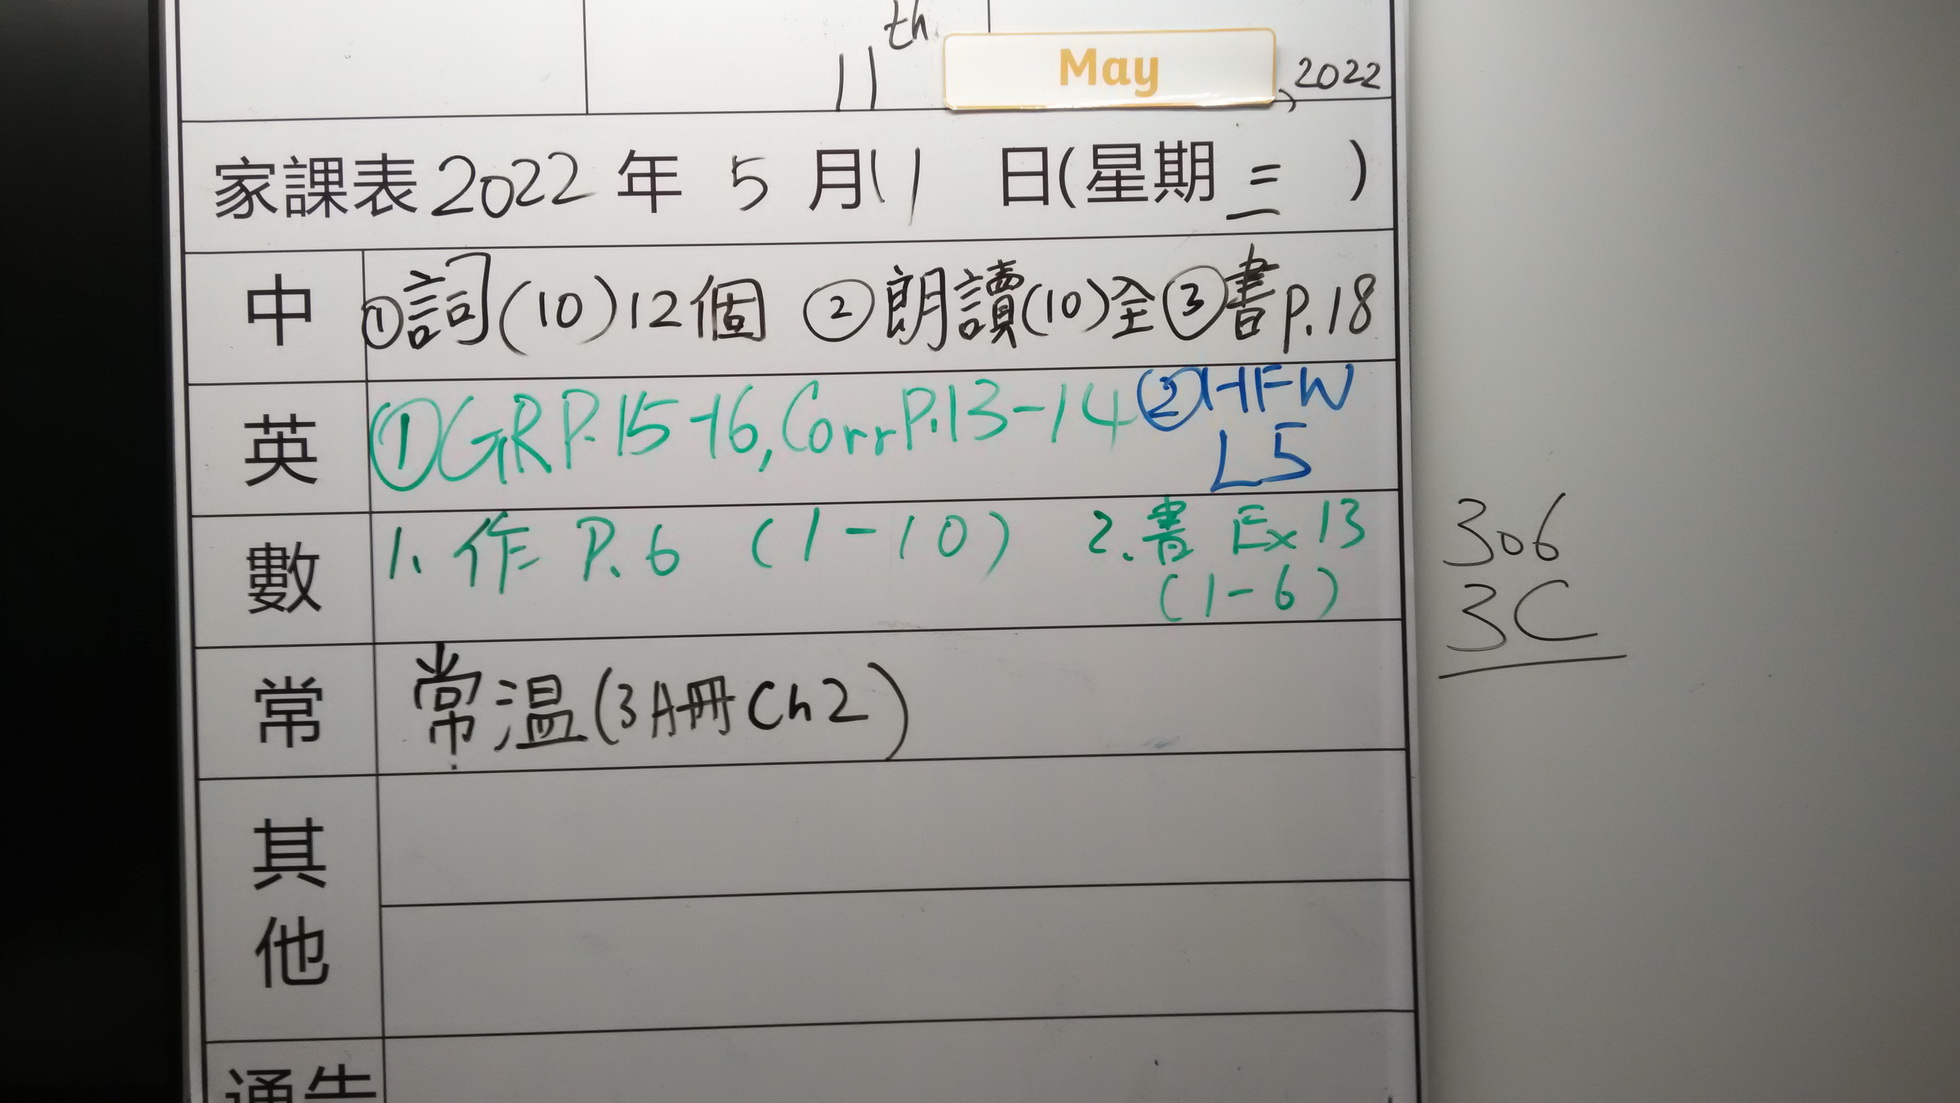 11th May, 2022
家課表2022年 5 月11 日(星期三 )
中 ①詞(10)12個 ②朗讀(10)全③書P.18
英 ①GRP.15-16,CorrP.13-14②HFW
L5
數 1.作 P.6 (1-10) 2.書 Ex 13
(1-6)
常 常温(3A冊Ch2)
其
他
通告
306
3C